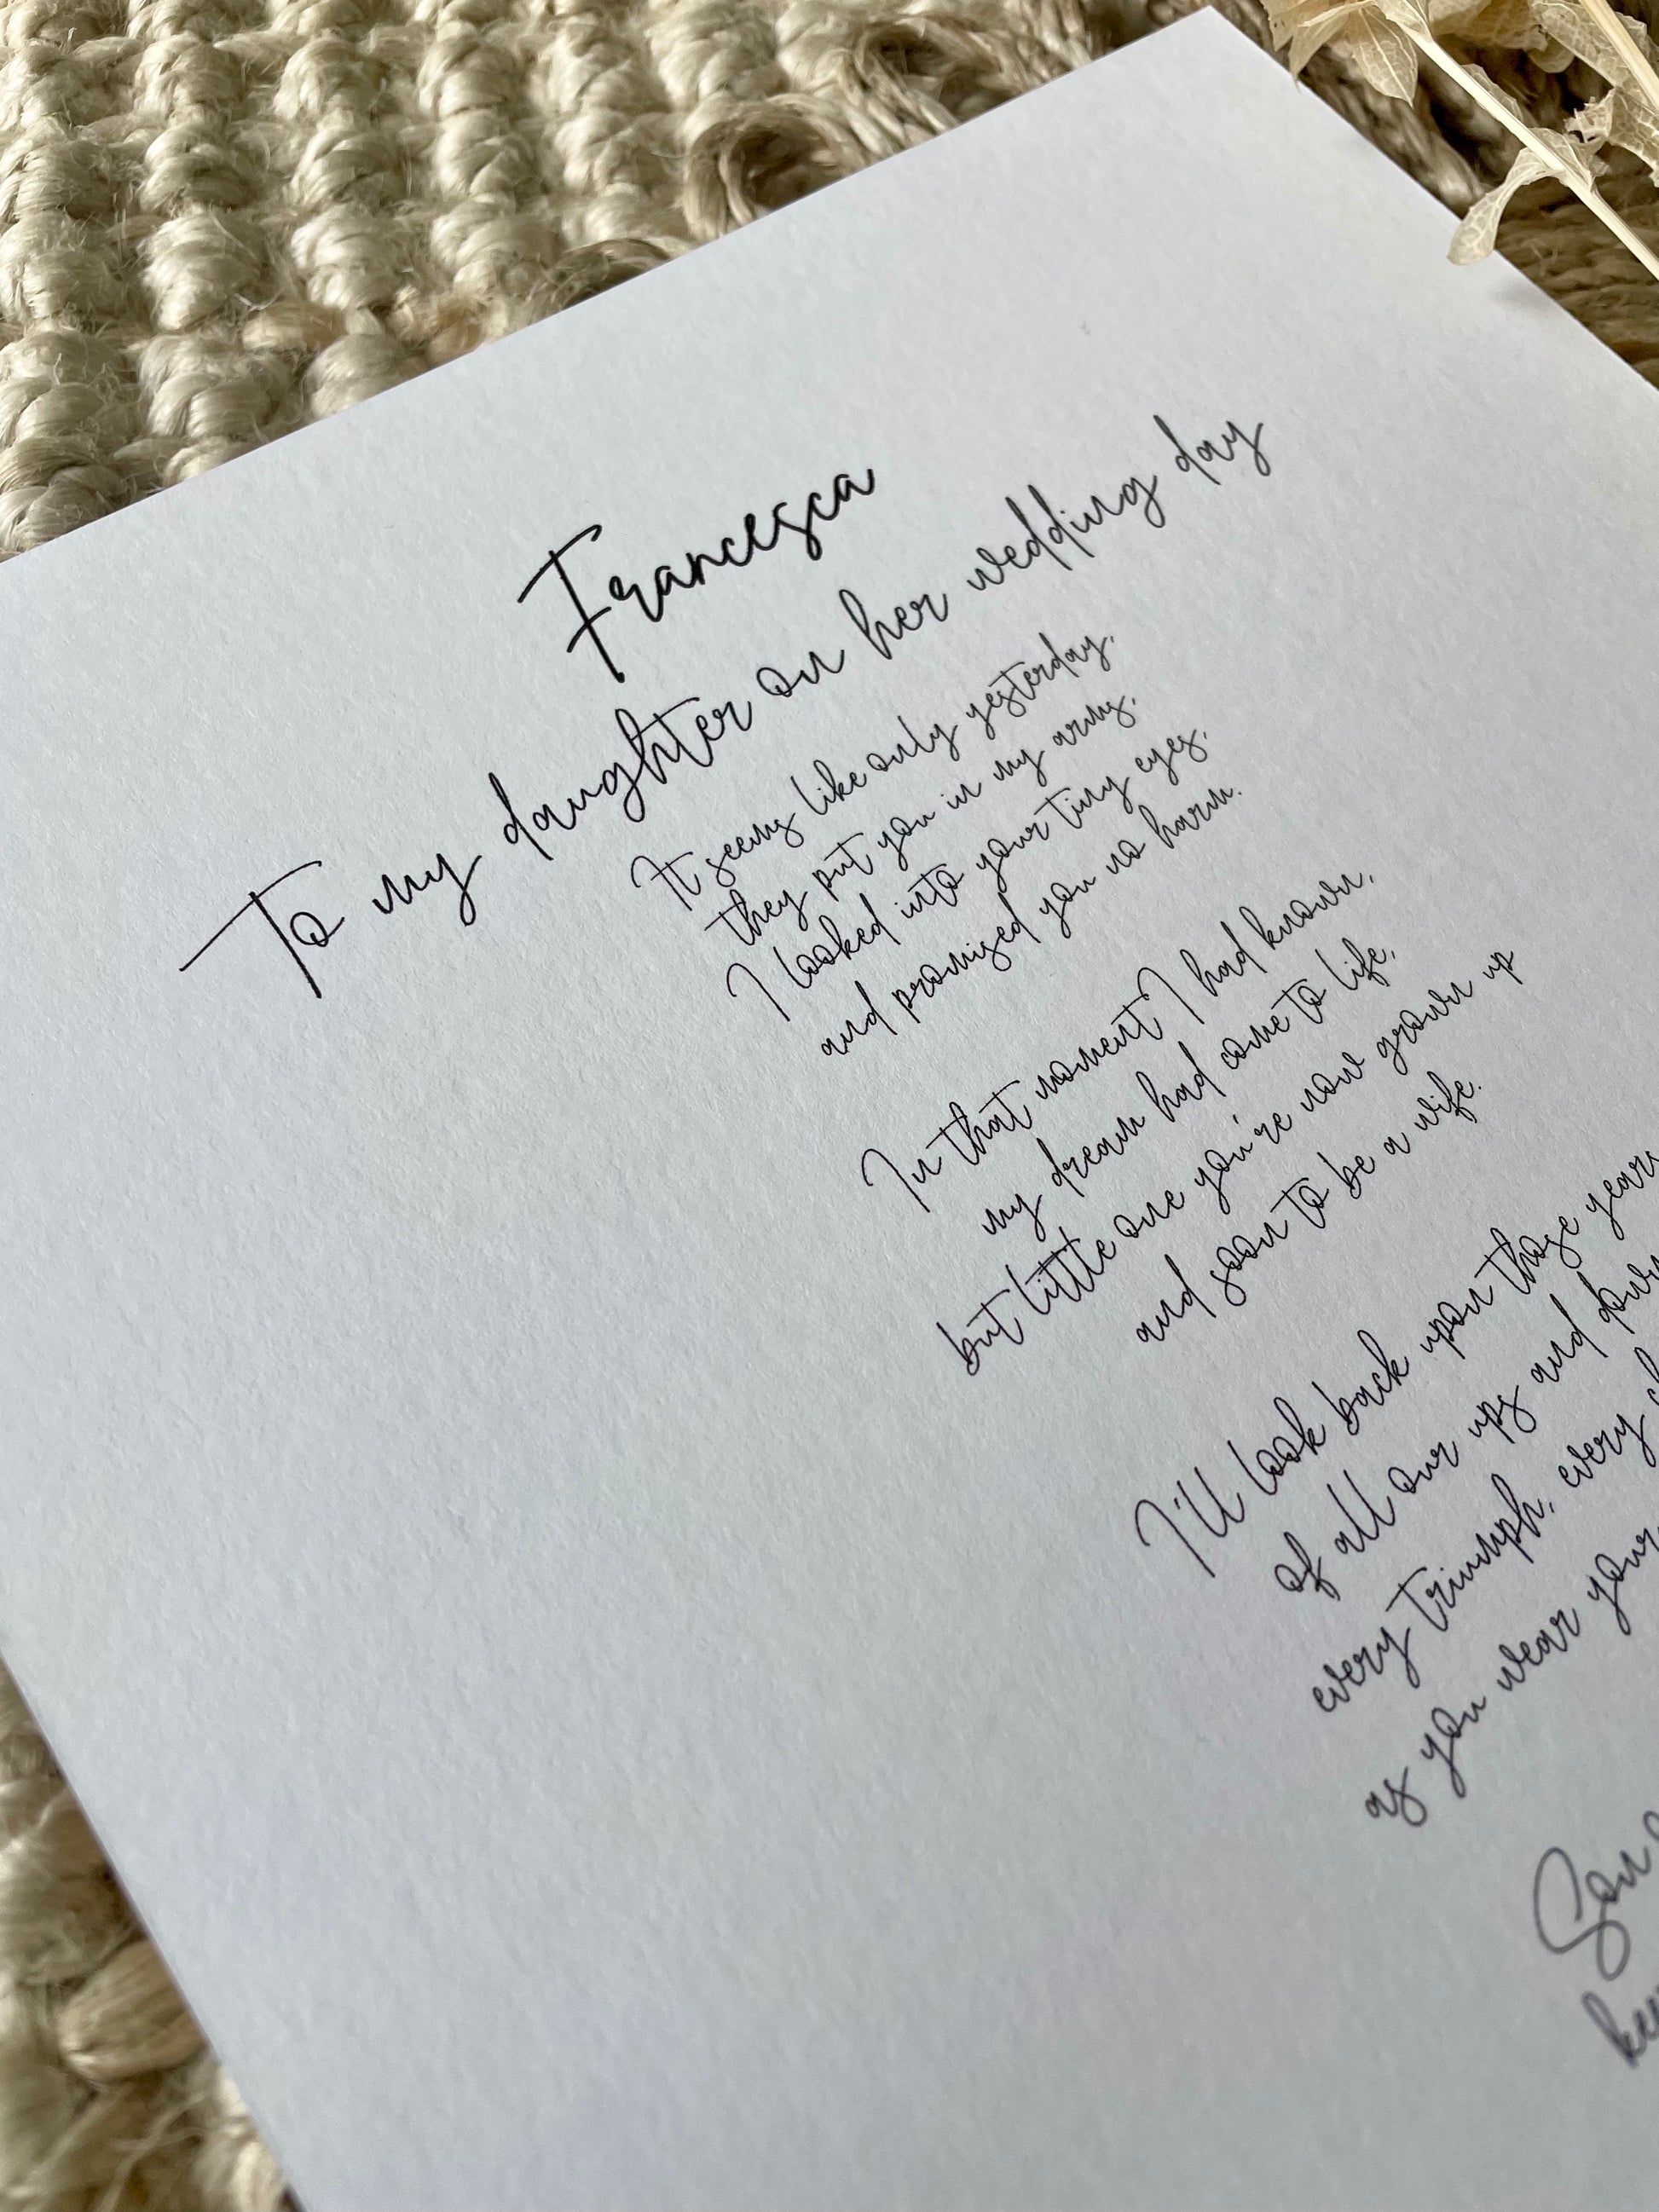 Francesca
To my daughter on her wedding day
It seems like only yesterday,
they put you in my arms,
I looked into your tiny eyes,
and promised you no harm.
In that moment I had known,
my dream had come to life,
but little one you're now grown up
and soon to be a wife.
I'll look back upon those years
of all our ups and
every triumph, every
as you wear your